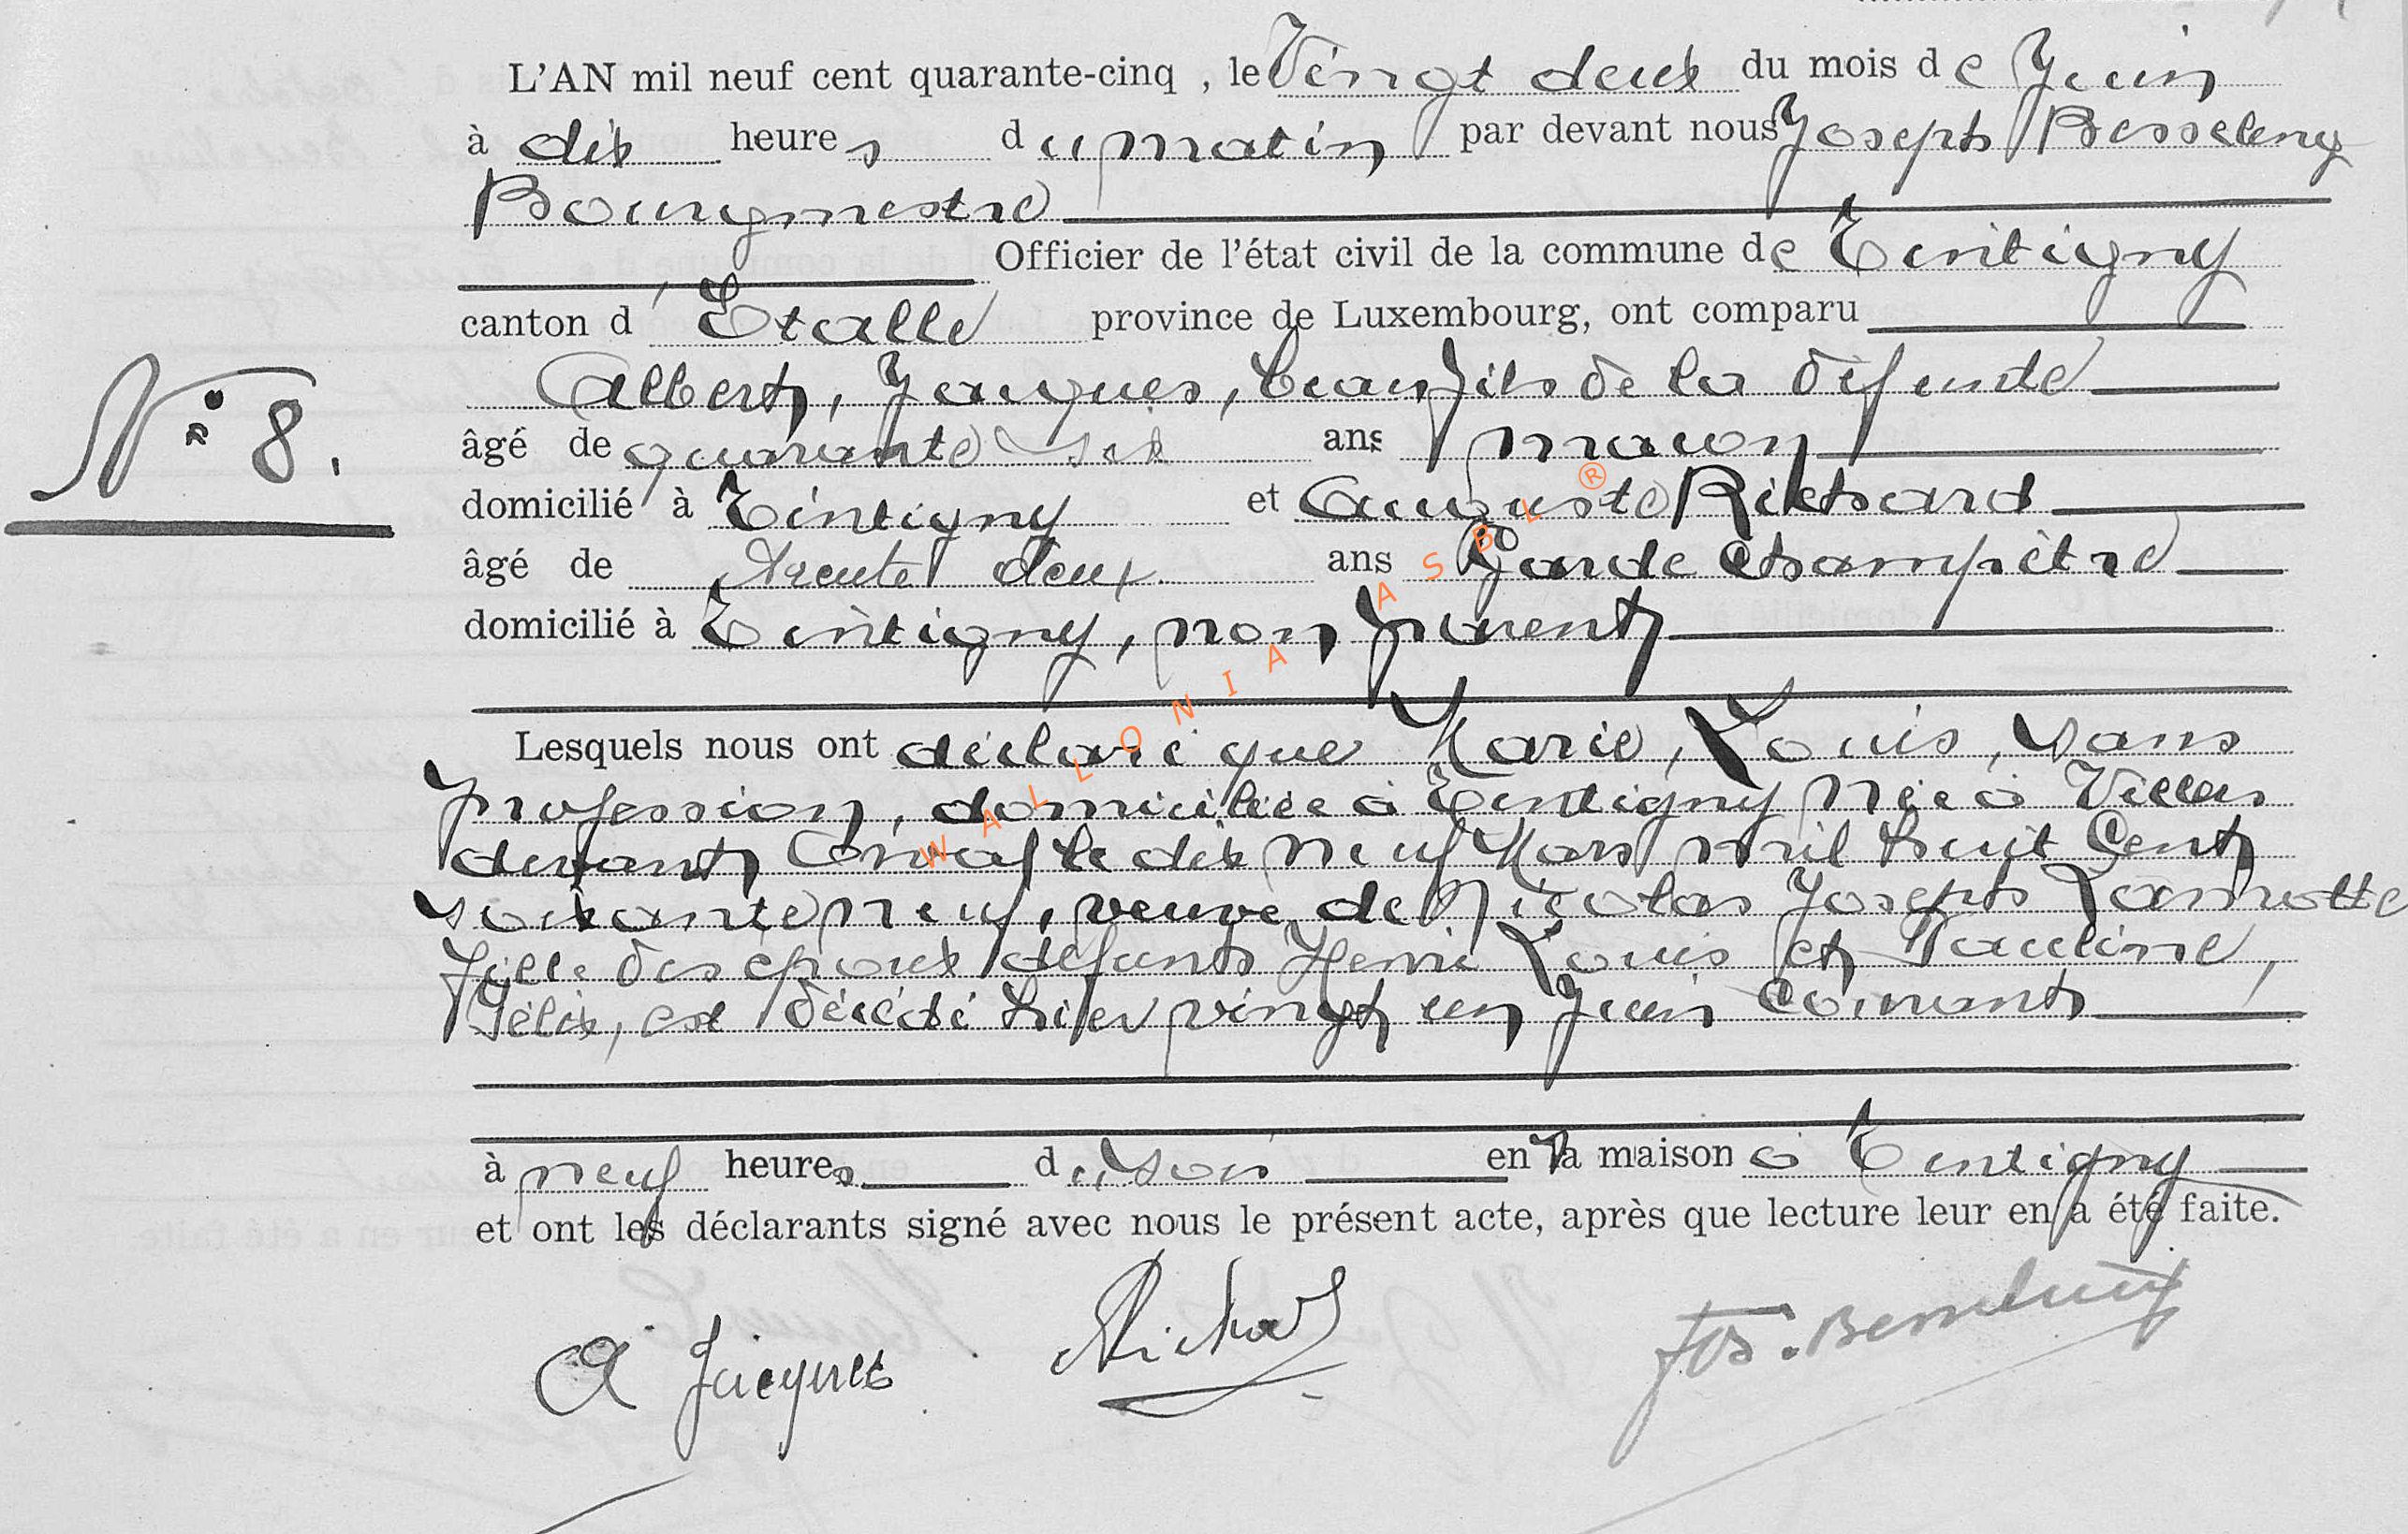 L'AN mil neuf cent quarante-cinq , le Vingt deux du mois de Juin
à dix heures du matin par devant nous Joseph Besseling
Bourgmestre
Officier de l'état civil de la commune de Tintigny
canton d'Etalle province de Luxembourg, ont comparu
Albert, Jacques, beau fils de la défunte
N° 8.
âgé de quarante six ans maçon
domicilié à Tintigny et Auguste Richard
âgé de trente deux ans Garde Champêtre
domicilié à Tintigny, non parent
Lesquels nous ont déclaré que Marie, Louis, sans
profession, domiciliée à Tintigny née à Villers
devant Orval le dix neuf Mars mil huit Cent
soixante neuf, veuve de Nicolas Joseph Lamotte
fille des époux défunts Henri Louis et Pauline,
Félix, est décédé hier vingt un Juin courant
à neuf heures du soir en la maison à Tintigny
et ont les déclarants signé avec nous le présent acte, après que lecture leur en a été faite.
A Jacques Richard Jos. Besseling
WALLONIA ASBL ®